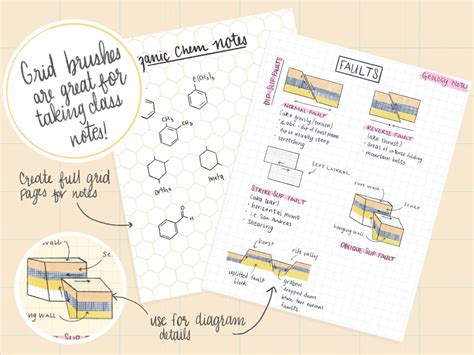 Grid brushes
are great for
taking class
notes!
Create full grid
pages for notes
organic Chem notes
ortho
meta
use for diagram
details
FAULTS
GEOLOGY NOTES
DIP-SLIP FAULTS
NORMAL FAULT
(aka gravity/tension)
dip is usually steep
- stretching
REVERSE FAULT
(aka thrust)
- areas of intense folding
mountain belts
LEFT LATERAL
STRIKE-SLIP FAULT
- horizontal motion
- i.e. San Andreas
- shearing
foot wall
hanging wall
OBLIQUE-SLIP FAULT
horst
rift valley
uplifted fault
block
graben
dropped down
between two normal
faults
wall
sc
ng wall